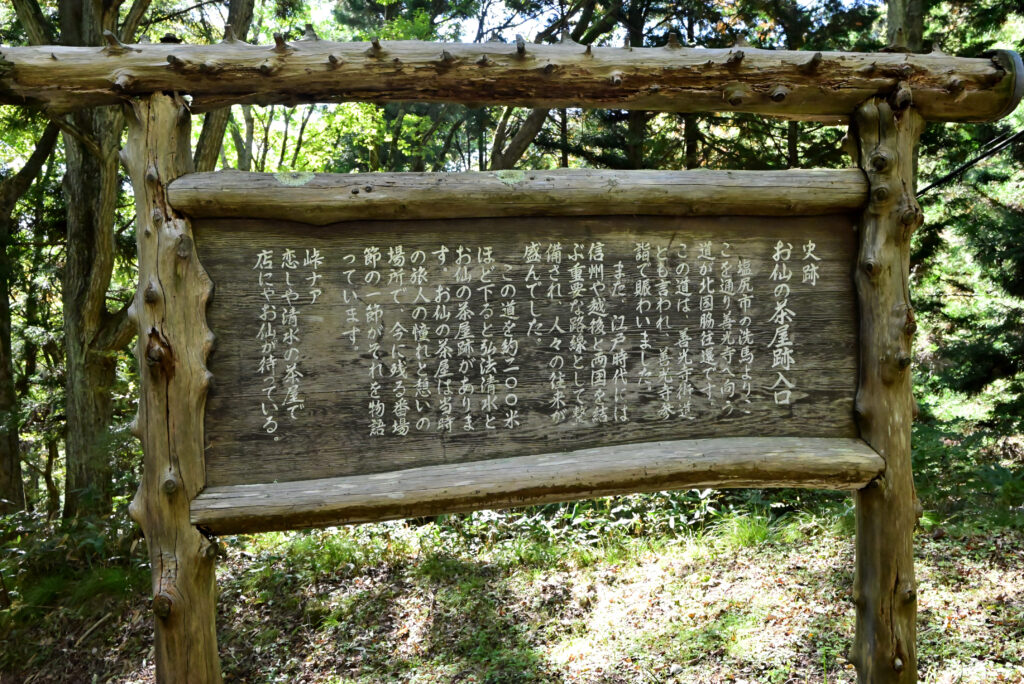 史跡
お仙の茶屋跡入口
塩尻市の洗馬よりこ
こを通り善光寺へ向う
道が北国脇往還です。
この道は、善光寺街道
とも言われ、善光寺参
詣で賑わいました。
また、江戸時代には
信州や越後と両国を結
ぶ重要な路線として整
備され、人々の往来が
盛んでした。
この道を約二〇〇米
ほど下ると弘法清水と
お仙の茶屋跡がありま
す。お仙の茶屋は当時
の旅人の憧れと憩いの
場所で、今に残る番場
節の一節がそれを物語
っています。
峠ナア
恋しや清水の茶屋で
店にやお仙が待っている。